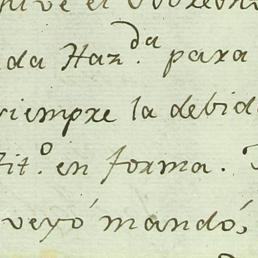 da Haz.da para
siempre la debid
tit.o en forma.
veyó mandó,